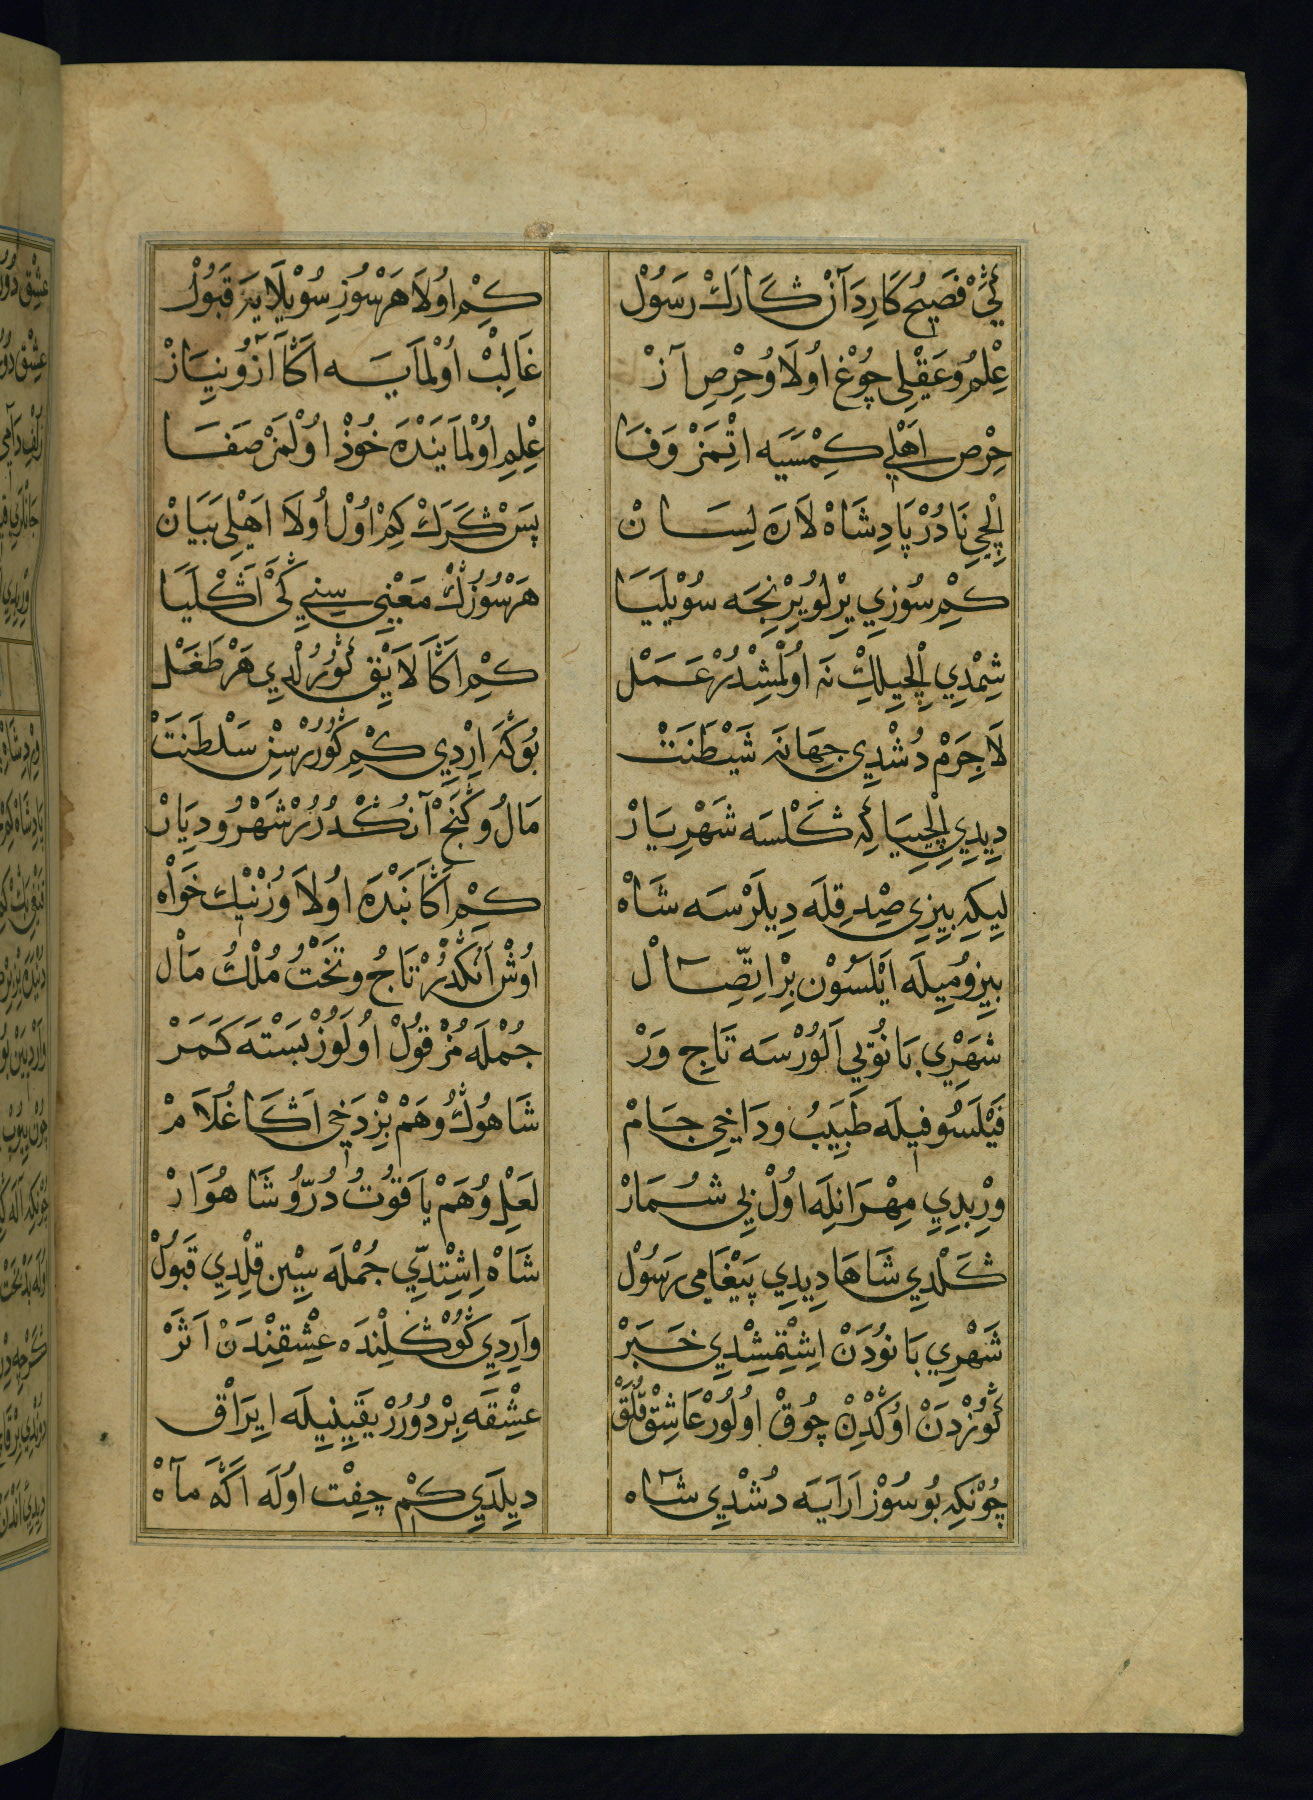 فَصِيحُ كَارِدَانْ كَارَكْ رَسُولْ كِمْ اُولَا هَرْ سُوزِ سُويْلَايَهْ قَبُولْ
عِلْمُ و عَقْلِي چُوغْ اُولَا وُ حِرْصِ آزْ غَالِبْ اُولْمَايَه اَكَا آزُ و نِيَازْ
حِرْص اَهْلِي كِمْسَيَه اِتْمَزْ وَفَا عِلْمِ اُولْمَايَنْدَه خُوذْ اُولْمَزْ صَفَا
اِلْچِي نَادُرْ پَادِشَاهْ لَارَه لِسَانْ پَسْ كَرَكْ كِمْ اُولْ اُولَا اَهْلِي بَيَانْ
كِمْ سُوزِي يِرْلُو يِرِنْجَه سُويْلَيَا هَرْ سُوزُكْ مَعْنِي سِنِي كَيْ اَكْلَيَا
شِمْدِي اِلْچِيلِكْ نَه اُولْمِشْدُرْ عَمَلْ كِمْ اَكَا لَايِقْ كُورُلْدِي هَرْ طَغَلْ
لَاجِرَمْ دُشْدِي جِهَانَه شَيْطَنَتْ بُوكَه اِرْدِي كِمْ كُورُرْسِنْ سَلْطَنَتْ
دِيدِي اِلْچِيَا كِه كَلْسَه شَهْرِيَارْ مَالُ و كَنْجْ آنُكْدُرُرْ شَهْرُ و دِيَارْ
لِيكِه بِيزِي صِدْقِلَه دِيلَرْسَه شَاهْ كِمْ اَكَا بَنْدَه اُولَا وُزْنِيكْ خَوَاْه
بِيزُومِيلَه اَيْلَسُونْ بِرْ اِتِّصَالْ اُوشْ آنُكْدُرُرْ تَاجُ و تَخْتُ مُلْكُ مَالْ
شَهْرِي بَانُويِي اَلُورْسَه تَاجِ وَرْ جُمْلَه مُزْ قُولْ اُولَوُزْ بَسْتَه كَمَرْ
فَيْلَسُوفِيلَه طَبِيبُ و دَاخِي جَامْ شَاهُوكْ وُ هَمْ بِزْ دَخِي اَكَا غُلَامْ
وِرْبِدِي مِهْرَانِلَه اُولْ بِي شُمَارْ لَعْلِ وُ هَمْ يَاقُوتُ دُرُّو شَاهُوَارْ
كَلْدِي شَاهَا دِيدِي پَيْغَامِي رَسُولْ شَاهْ اِشِتْدِي جُمْلَه سِيْن قِلْدِي قَبُولْ
شَهْرِي بَانُودَنْ اِشِتْمِشْدِي خَبَرْ وَارِدِي كُوكْلِنْدَه عِشْقِنْدَنْ اَثَرْ
كُوزْدَنْ اُوكْدِنْ چُوقْ اُولُورْ عَاشِقْلُقْ عِشْقَه بِرْدُورُرْ يَقِينِيلَه اِيرَاقْ
چُونْكِه بُو سُوزْ اَرَايَه دُشْدِي شَاه دِيلَدِي كِمْ جِفْت اُولَه اَكَّه مَآهْ